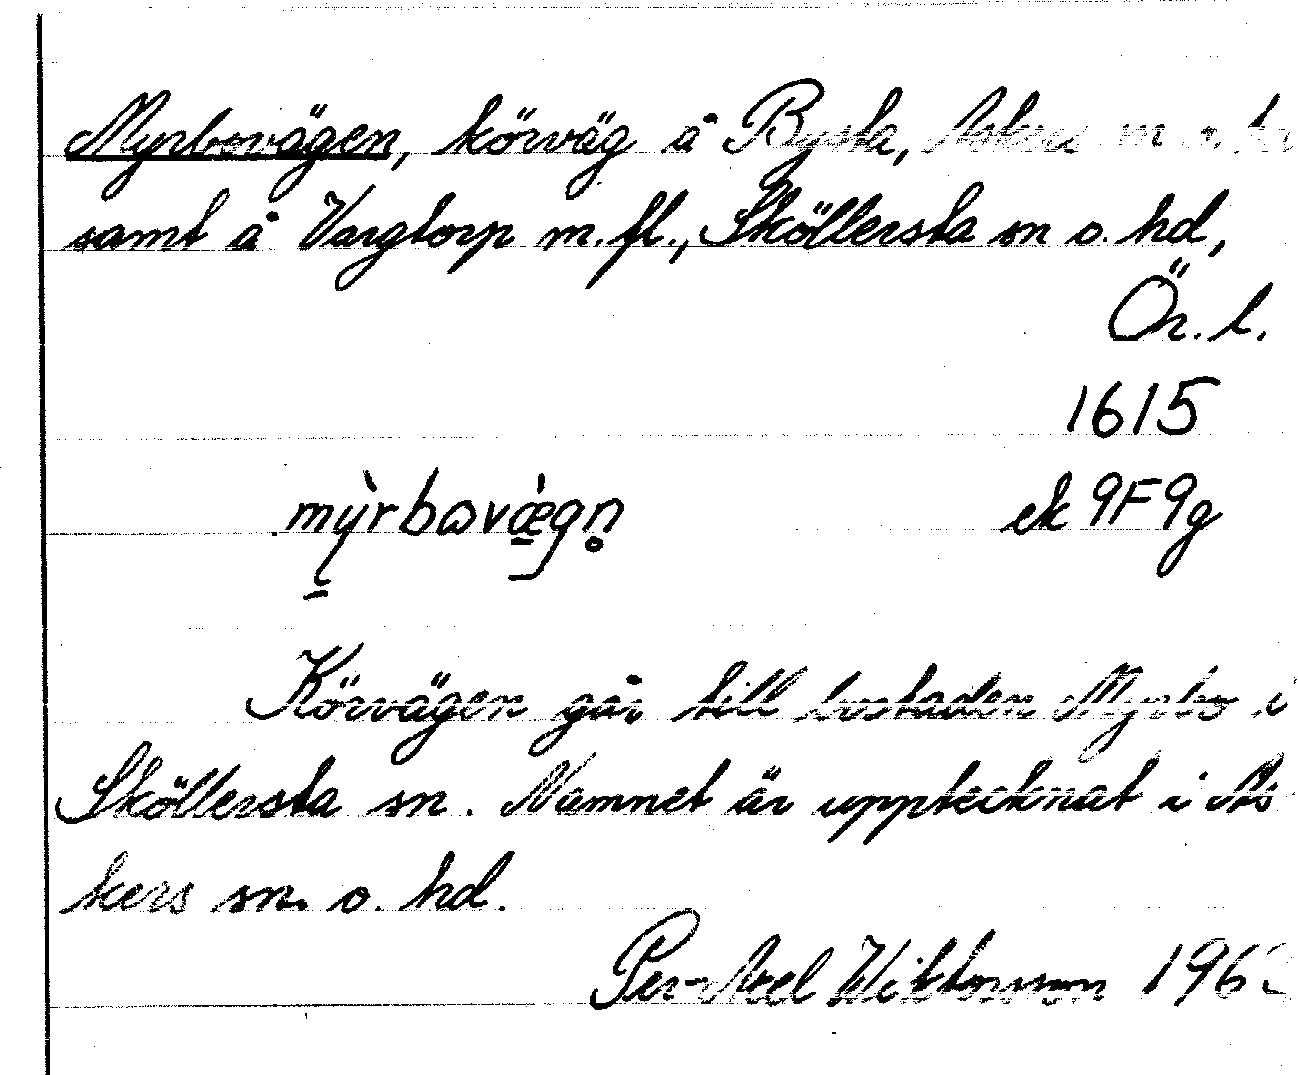 Myrbovägen, körväg å Bysta, Askers sn o. hd
samt å Vargtorp m.fl., Sköllersta sn o. hd,
Ör. l.
1615
mỳrbωvǽgn̥ ek 9F9g
Körvägen går till bostaden Myrbo i
Sköllersta sn. Namnet är upptecknat i As
kers sn. o. hd.
Per-Axel Wiktorsson